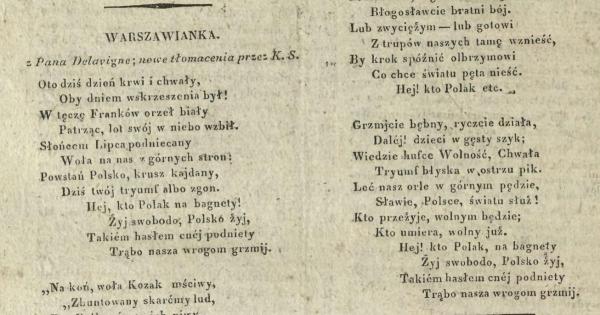 WARSZAWIANKA.
z Pana Delavigne; nowe tłomacenia przez K. S.
Oto dziś dzień krwi i chwały,
Oby dniem wskrzeszenia był!
W tęczę Franków orzeł biały
Patrząc, lot swój w niebo wzbił.
Słońcem Lipca podniecany
Woła na nas z górnych stron:
Powstań Polsko, krusz kajdany,
Dziś twój tryumf albo zgon.
Hej, kto Polak na bagnety!
Żyj swobodo, Polsko żyj,
Takiém hasłem cnéj podniety
Trąbo nasza wrogom grzmij.
„Na koń, woła Kozak mściwy,
„Zbuntowany skarćmy lud,
Błogosławcie bratni bój.
Lub zwyciężym — lub gotowi
Z trupów naszych tamę wznieść,
By krok spóźnić olbrzymowi
Co chce światu pęta nieść.
Hej! kto Polak etc.
Grzmijcie bębny, ryczcie działa,
Daléj! dzieci w gęsty szyk;
Wiedzie hufce Wolność, Chwała
Tryumf błyska w ostrzu pik.
Leć nasz orle w górnym pędzie,
Sławie, Polsce, światu służ!
Kto przeżyje, wolnym będzie;
Kto umiera, wolny już.
Hej! kto Polak, na bagnety
Żyj swobodo, Polsko żyj,
Takiém hasłem cnéj podniety
Trąbo nasza wrogom grzmij.